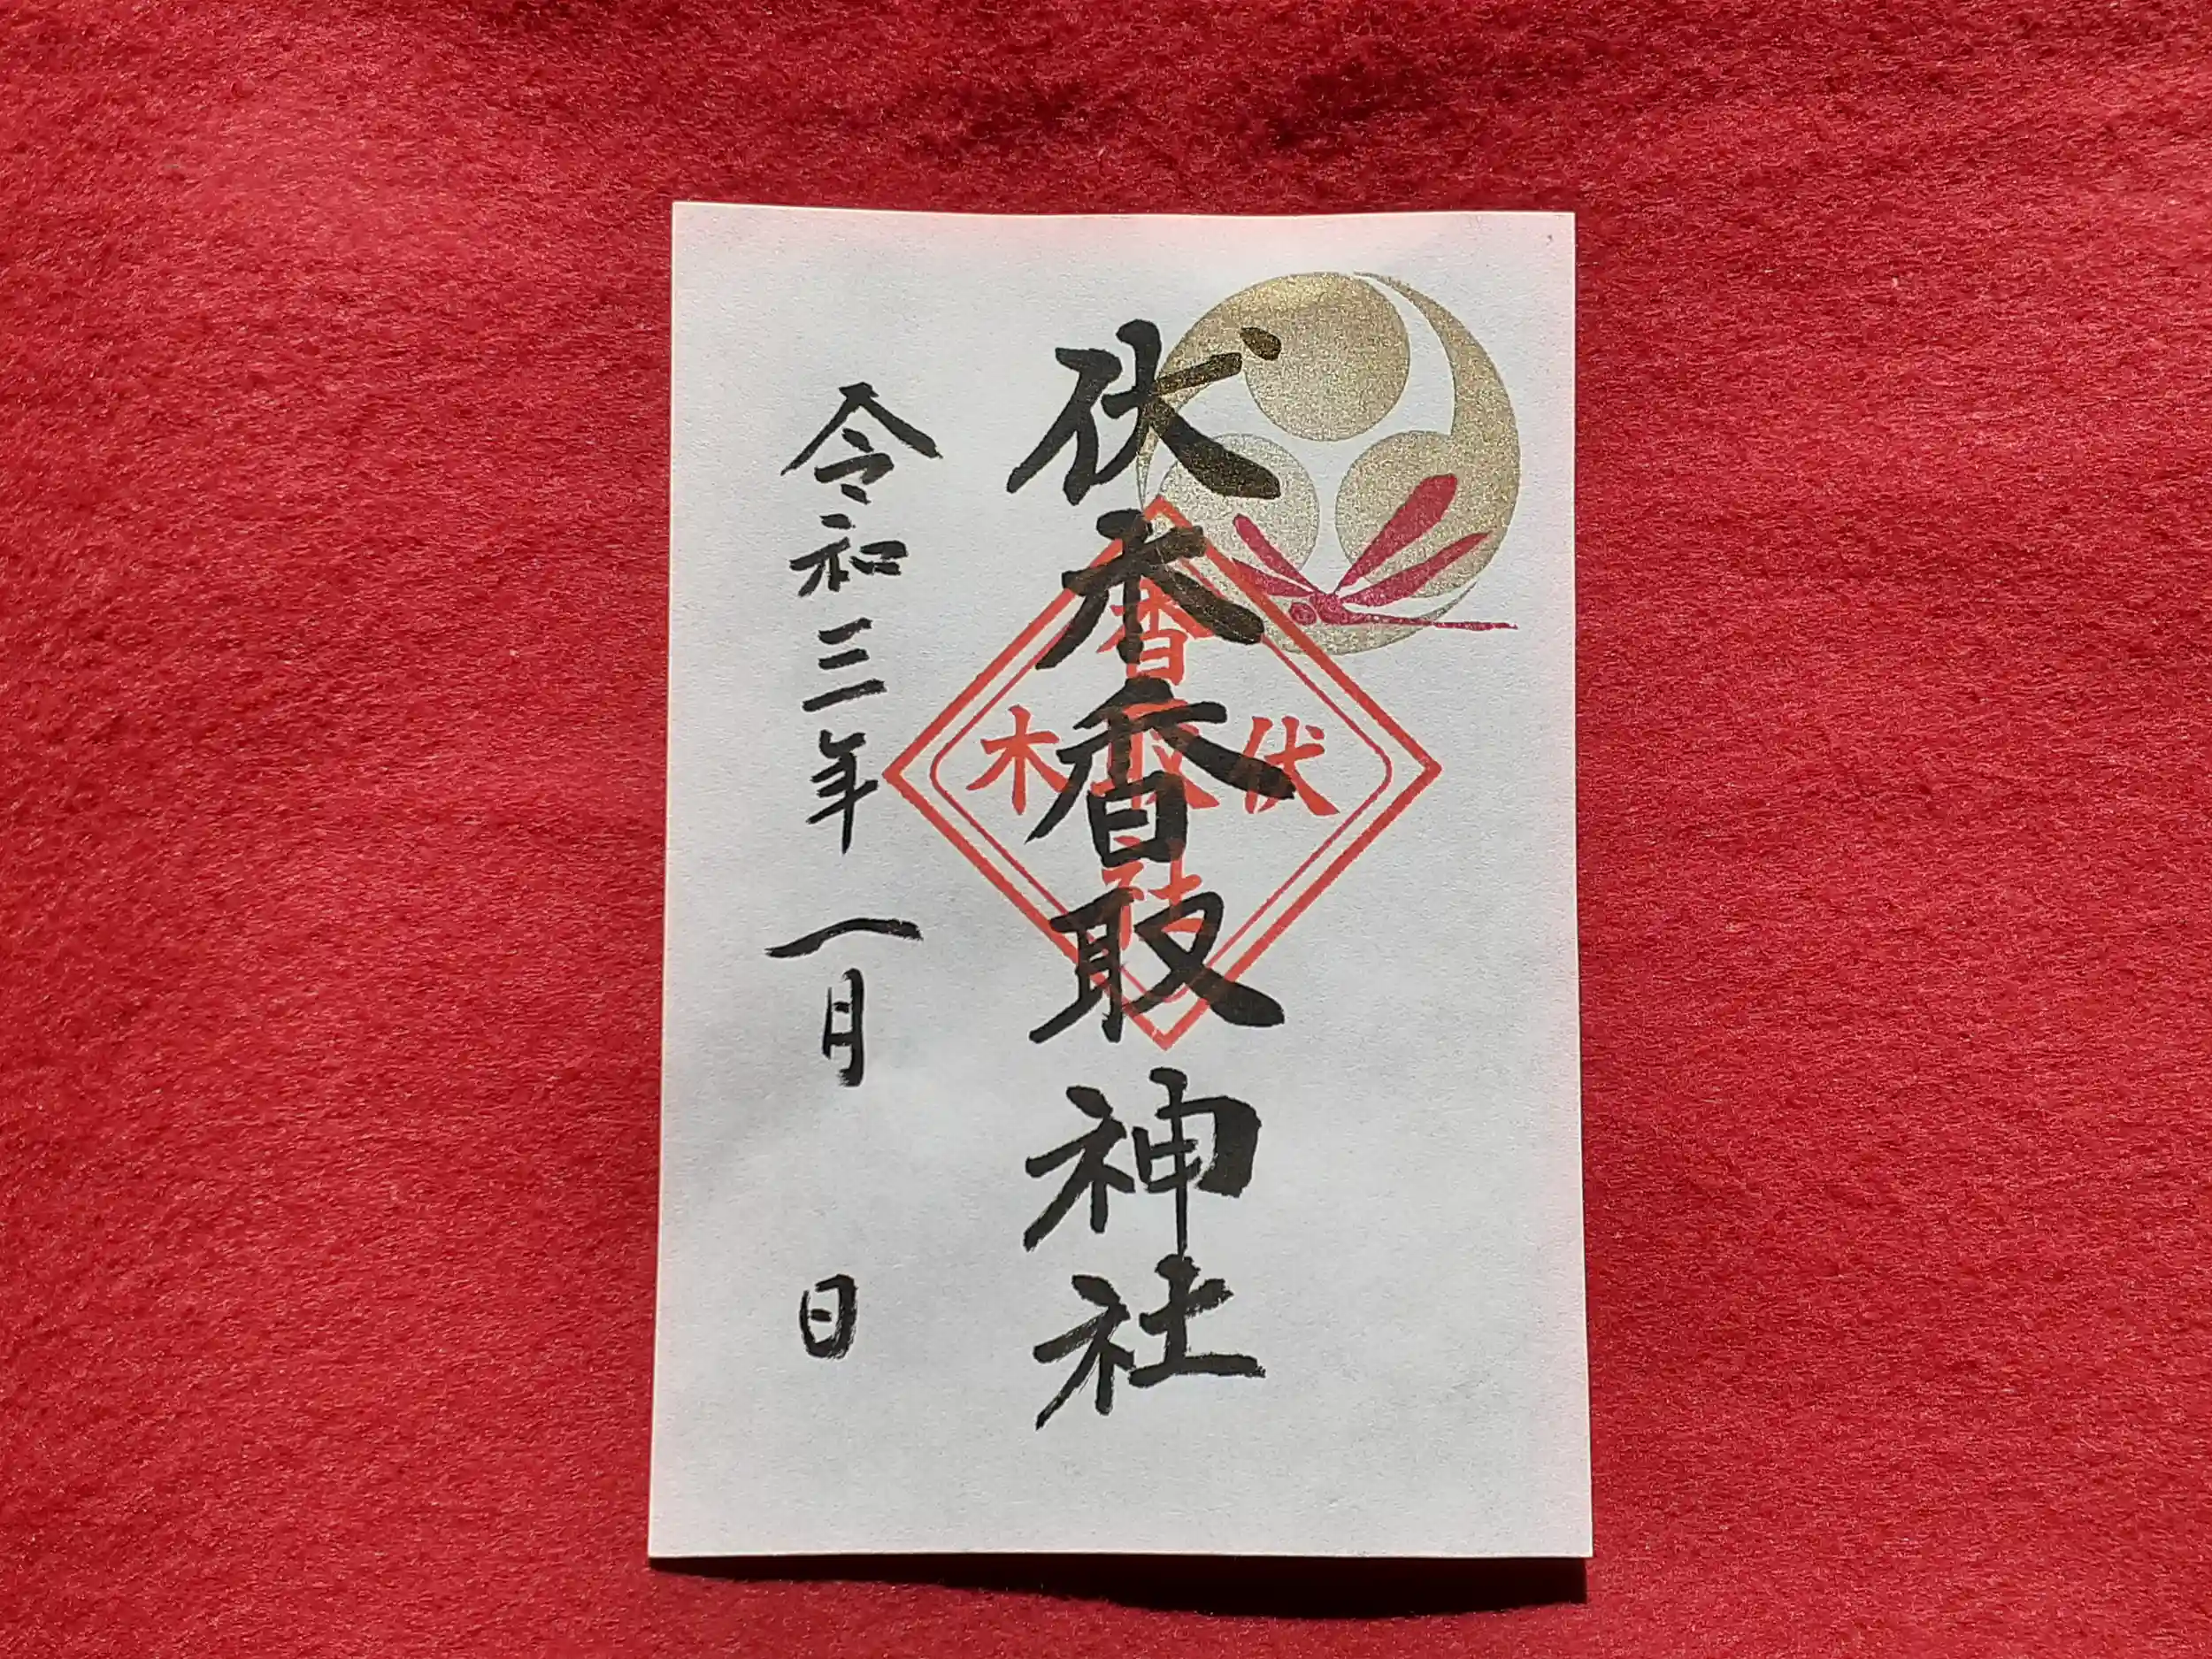 伏木香取神社
令和三年一月 日
伏
香取社
木